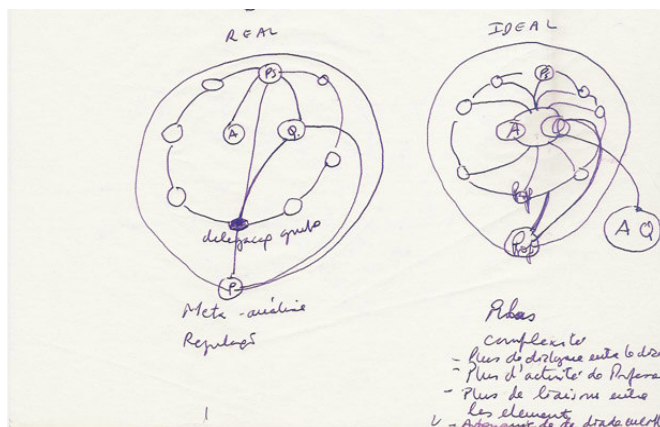 REAL
Ps
A
Q
delegação grupo
P
Meta-análise
Regulação
1
IDEAL
Ps
A
Q
Prof
Prof
A Q
Plus
complexité
- Plus de dialogue entre le
- Plus d'activité do
- Plus de liaisons entre
les element
de